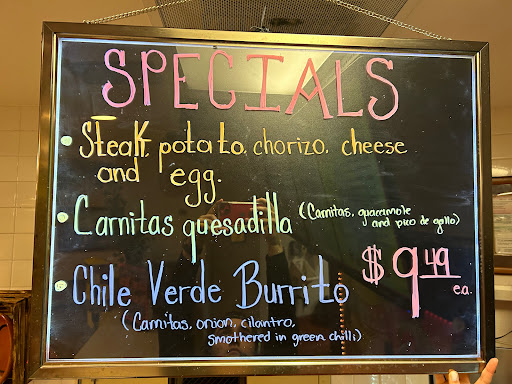 SPECIALS
• Steak, potato, chorizo, cheese
and egg.
• Carnitas quesadilla (Carnitas, guacamole
and pico de gallo)
• Chile Verde Burrito
$9.49
ea.
(Carnitas, onion, cilantro,
smothered in green chilli)